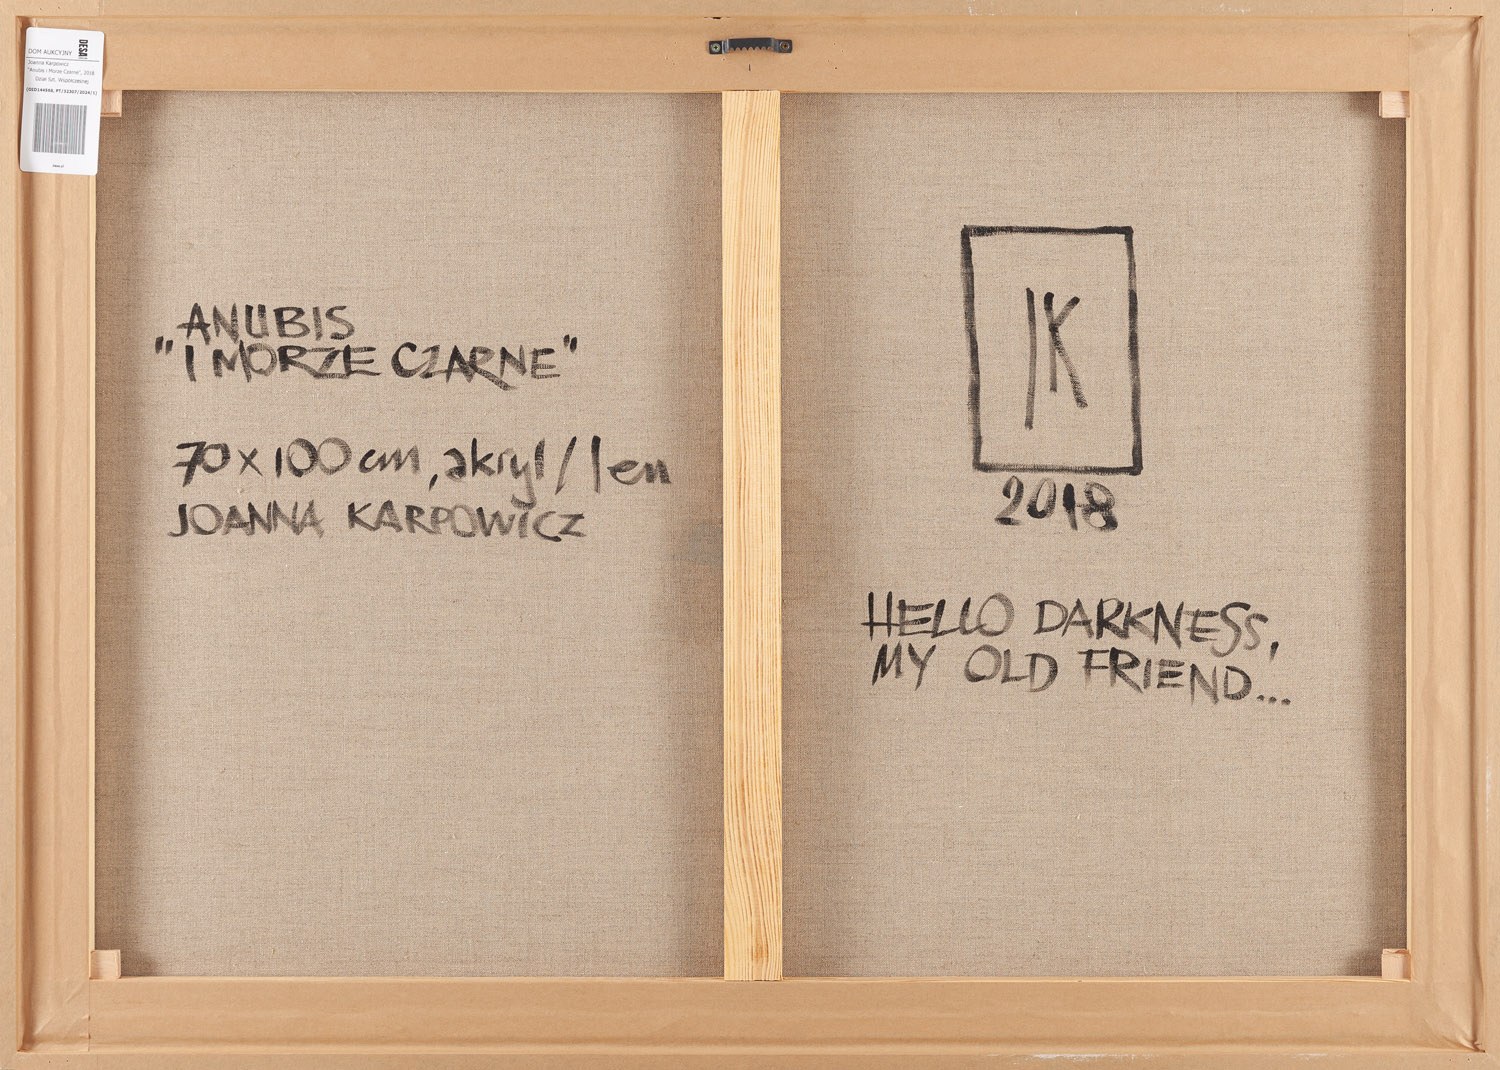 DESA
DOM AUKCYJNY
Joanna Karpowicz
"Anubis i Morze Czarne", 2018
Dział Szt. Współczesnej
"ANUBIS
I MORZE CZARNE"
70 x 100 cm, akryl / len
JOANNA KARPOWICZ
JK
2018
HELLO DARKNESS,
MY OLD FRIEND...